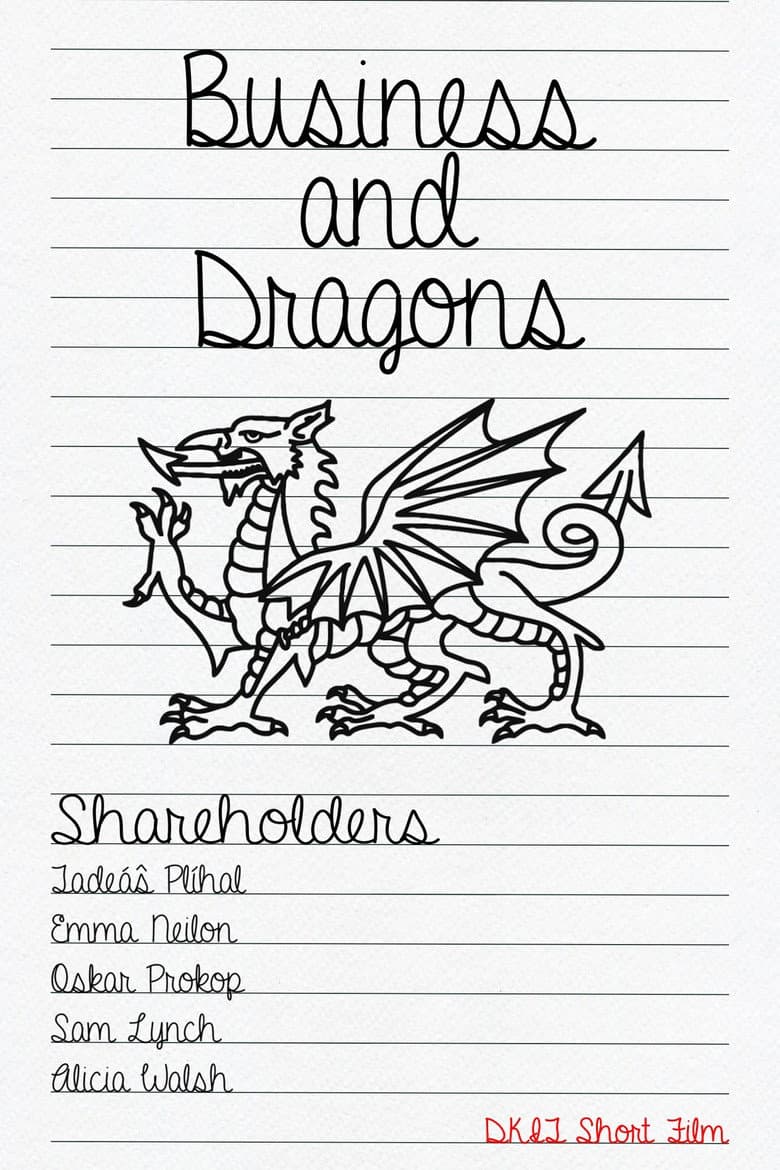 Business
and
Dragons
Shareholders
Tadeáŝ Plíhal
Emma Neilon
Oskar Prokop
Sam Lynch
Alicia Walsh
DKIT Short Film